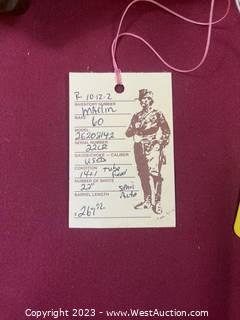 R 10-12-2
INVENTORY NUMBER
Marlin
MAKE
60
MODEL
SERIAL NUMBER
22LR
GAUGE/CHOKE - CALIBER
used
CONDITION
14+1 Tube Feed
NUMBER OF SHOTS
22" Semi
Auto
BARREL LENGTH
Copyright 2023 - WestAuction.com